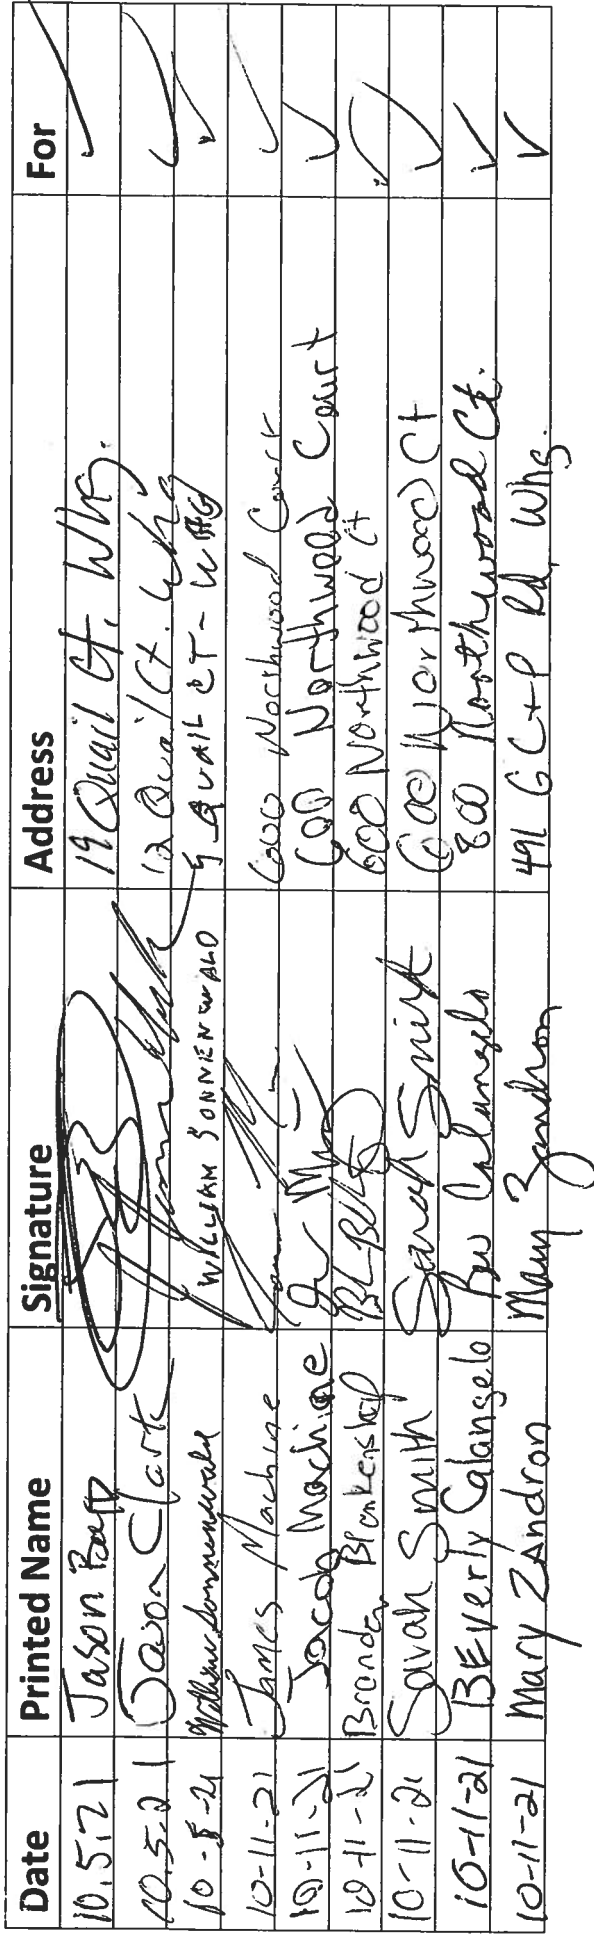 Date Printed Name Signature Address For
10.5.21 Jason 19 Quail Ct. Whg.
10.5.21 Jason Clark 12 Quail Ct. Whg
10-5-21 William Sonnenwald WILLIAM SONNENWALD 5 QUAIL CT - WHG
10-11-21 James Machine 600 Northwood Court
10-11-21 Jacob Machine 600 Northwood Court
10-11-21 Brandon Blankenship 600 Northwood Ct
10-11-21 Sarah Smith Sarah Smith 600 Northwood Ct
10-11-21 BEverly Calangelo Bev Calangelo 800 Northwood Ct.
10-11-21 Mary ZAndron Mary Zandron 491 G C+P Rd, Whg.